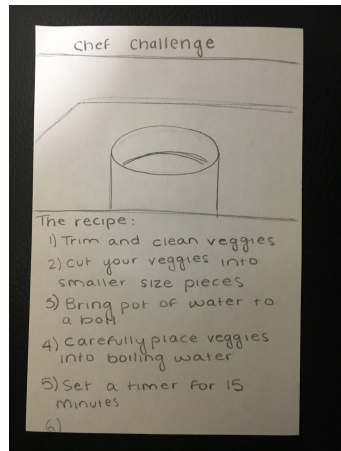 Chef Challenge
The recipe:
1) Trim and clean veggies
2) Cut your veggies into
smaller size pieces
3) Bring pot of water to
a boil
4) Carefully place veggies
into boiling water
5) Set a timer for 15
minutes
6)